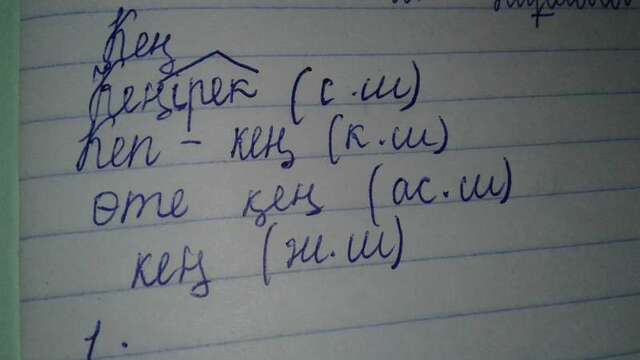 Кен
Кеңірек (с.ш)
Кеп - кең (к.ш)
Өте кең (ас.ш)
кең (ж.ш)
1.